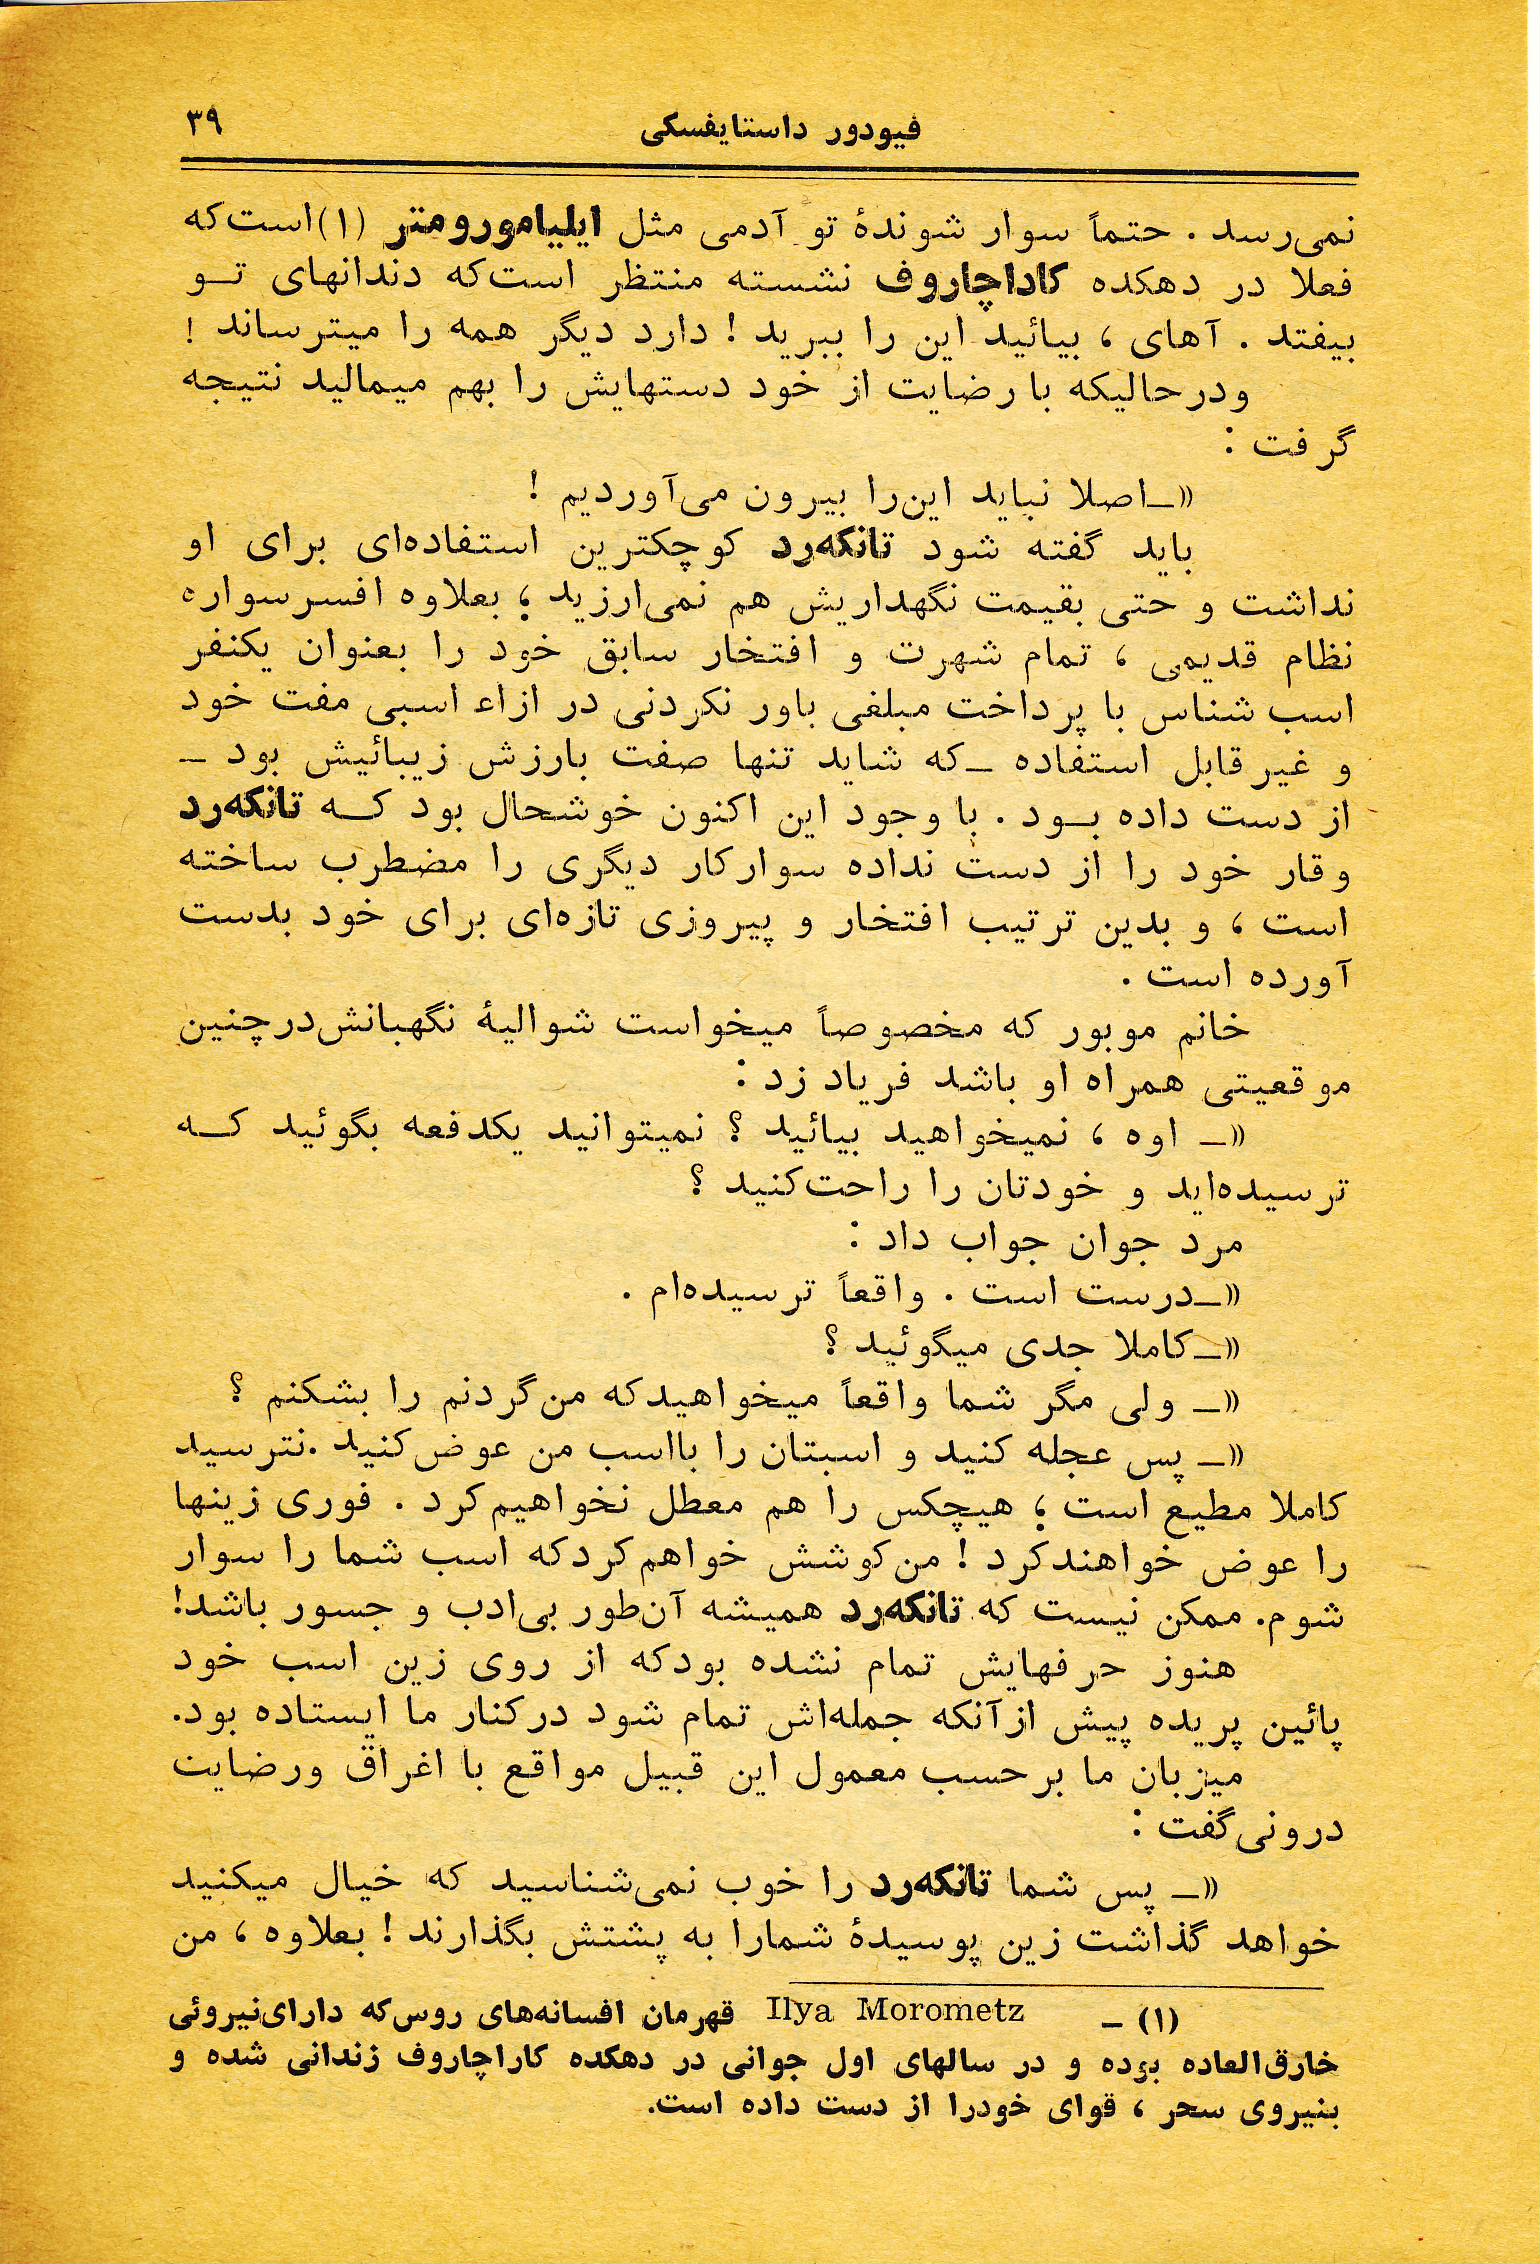 فیودور داستایفسکی
۳۹
نمی‌رسد . حتماً سوار شوندهٔ تو آدمی مثل ایلیامورومتر (۱) است‌که
فعلا در دهکده کاداچاروف نشسته منتظر است‌که دندانهای تــو
بیفتد . آهای ، بیائید این را ببرید ! دارد دیگر همه را میترساند !
ودرحالیکه با رضایت از خود دستهایش را بهم میمالید نتیجه
گرفت :
«ـ اصلا نباید این‌را بیرون می‌آوردیم !
باید گفته شود تانکه‌رد کوچکترین استفاده‌ای برای او
نداشت و حتی بقیمت نگهداریش هم نمی‌ارزید ؛ بعلاوه افسرسواره
نظام قدیمی ، تمام شهرت و افتخار سابق خود را بعنوان یکنفر
اسب شناس با پرداخت مبلغی باور نکردنی در ازاء اسبی مفت خود
و غیرقابل استفاده ـ که شاید تنها صفت بارزش زیبائیش بود ـ
از دست داده بــود . با وجود این اکنون خوشحال بود کــه تانکه‌رد
وقار خود را از دست نداده سوارکار دیگری را مضطرب ساخته
است ، و بدین ترتیب افتخار و پیروزی تازه‌ای برای خود بدست
آورده است .
خانم موبور که مخصوصاً میخواست شوالیهٔ نگهبانش‌درچنین
موقعیتی همراه او باشد فریاد زد :
«ـ اوه ، نمیخواهید بیائید ؟ نمیتوانید یکدفعه بگوئید کــه
ترسیده‌اید و خودتان را راحت‌کنید ؟
مرد جوان جواب داد :
«ـ درست است . واقعاً ترسیده‌ام .
«ـ کاملا جدی میگوئید ؟
«ـ ولی مگر شما واقعاً میخواهیدکه من‌گردنم را بشکنم ؟
«ـ پس عجله کنید و اسبتان را بااسب من عوض‌کنید .نترسید
کاملا مطیع است ؛ هیچکس را هم معطل نخواهیم‌کرد . فوری زینها
را عوض خواهندکرد ! من‌کوشش خواهم‌کردکه اسب شما را سوار
شوم. ممکن نیست که تانکه‌رد همیشه آن‌طور بی‌ادب و جسور باشد!
هنوز حرفهایش تمام نشده بودکه از روی زین اسب خود
پائین پریده پیش ازآنکه جمله‌اش تمام شود درکنار ما ایستاده بود.
میزبان ما برحسب معمول این قبیل مواقع با اغراق ورضایت
درونی‌گفت :
«ـ پس شما تانکه‌رد را خوب نمی‌شناسید که خیال میکنید
خواهد گذاشت زین پوسیدهٔ شمارا به پشتش بگذارند ! بعلاوه ، من
(۱) ـ Ilya Morometz قهرمان افسانه‌های روس‌که دارای‌نیروئی
خارق‌العاده بوده و در سالهای اول جوانی در دهکده کاراچاروف زندانی شده و
بنیروی سحر ، قوای خودرا از دست داده است.